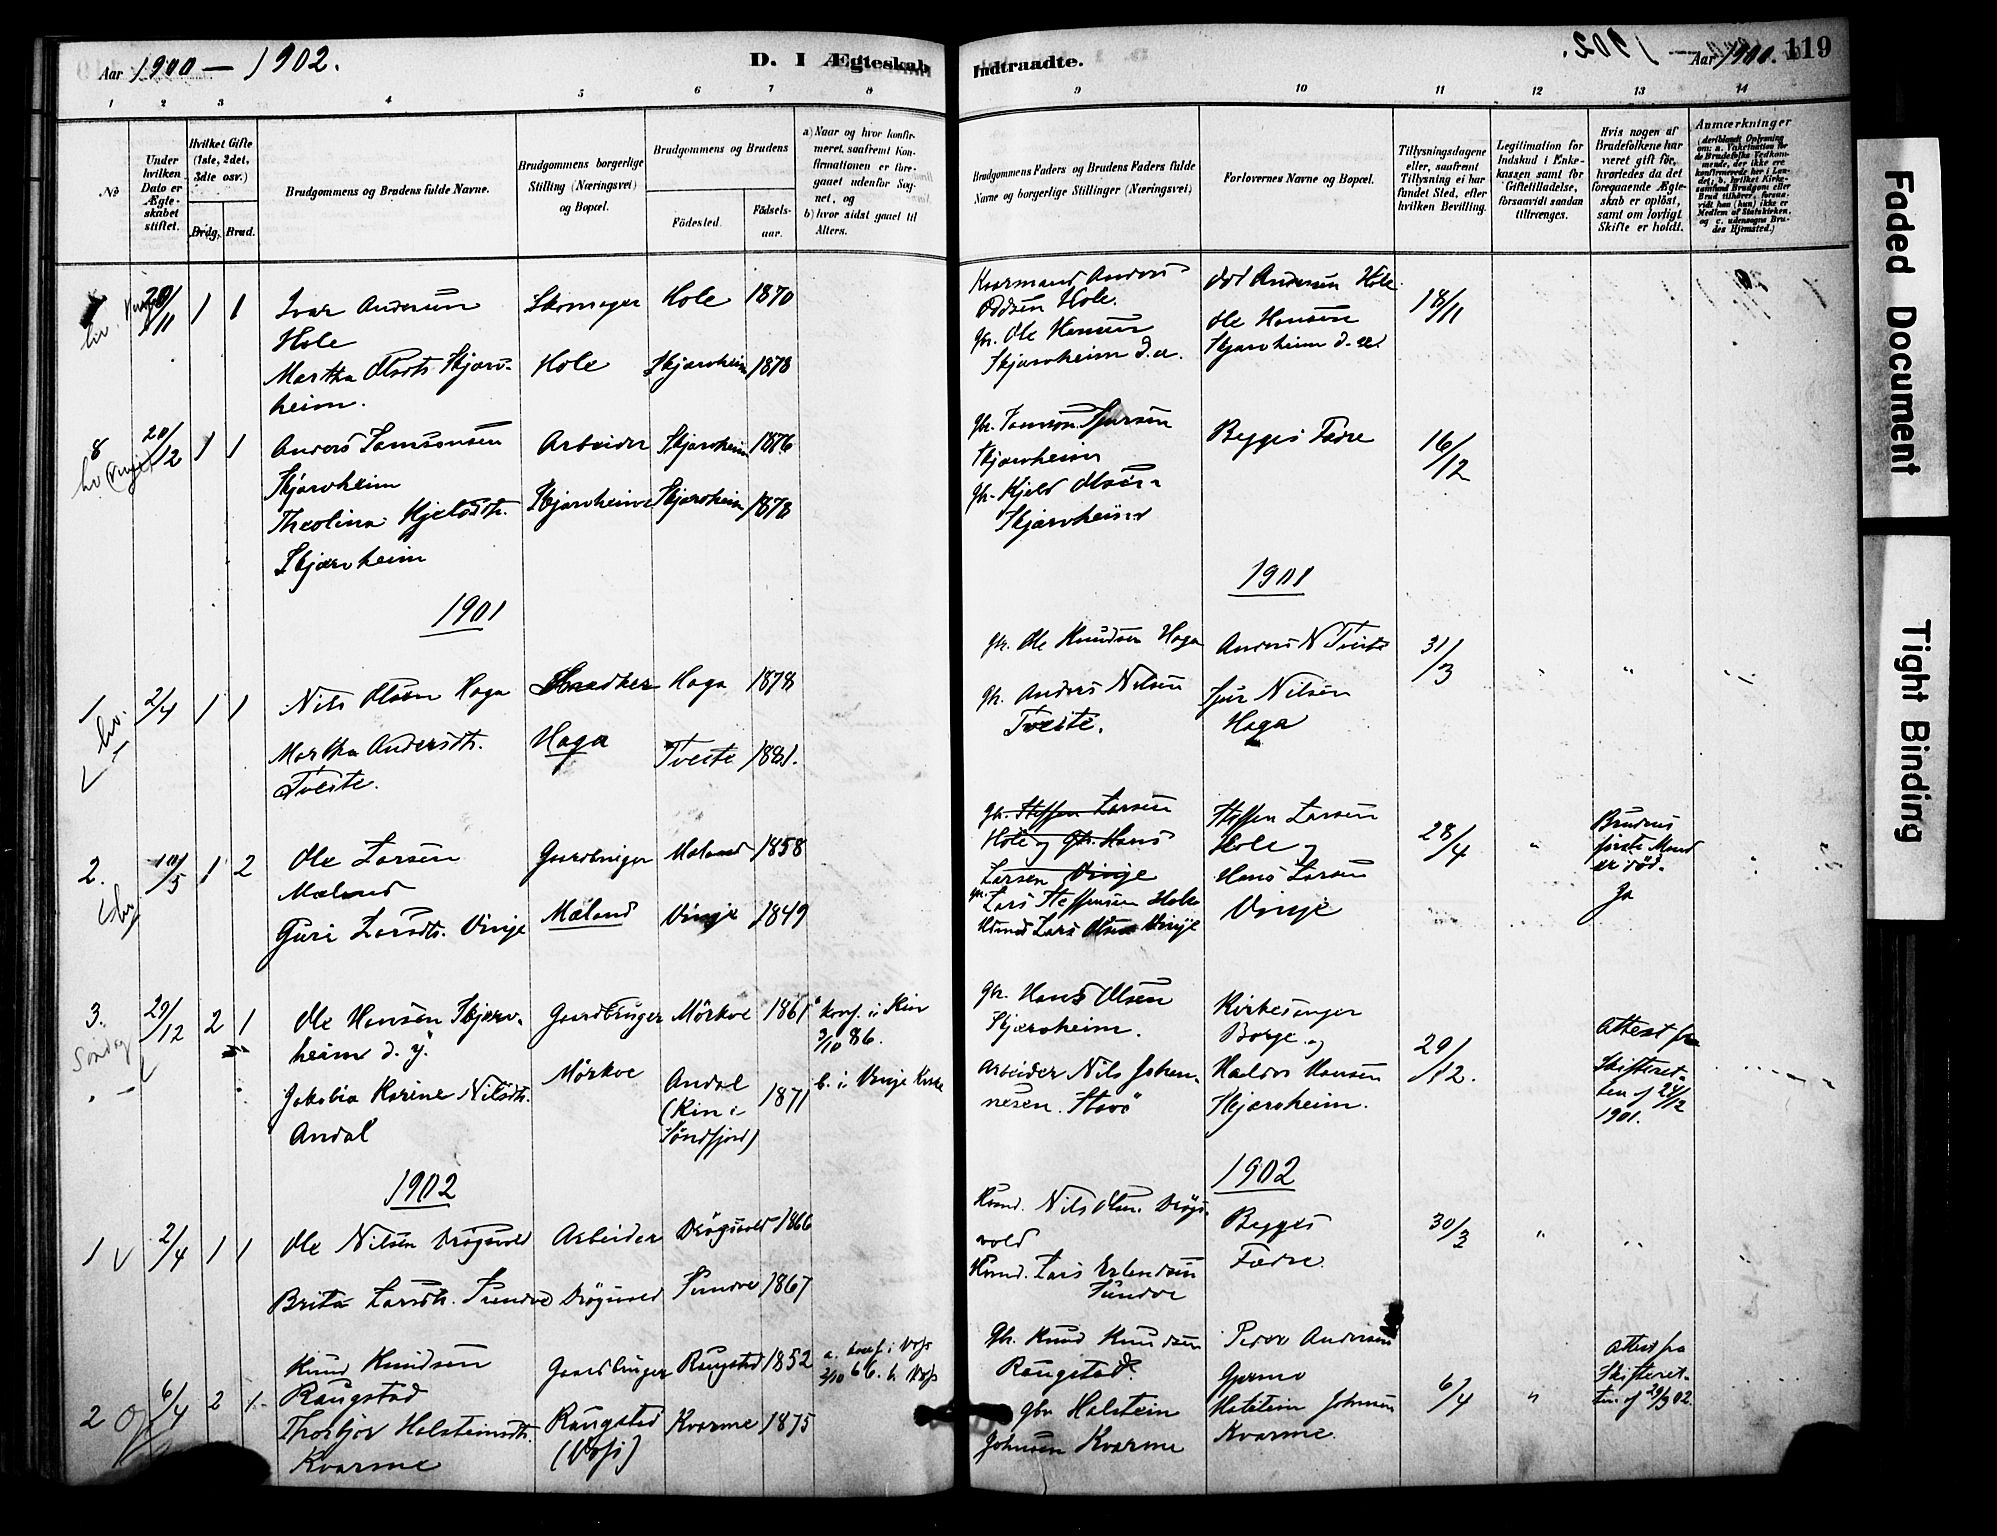 Aar 1900 — 1902.
D. I Ægteskab
Indtraadte.
Aar 1900.
119
1 2 3 4 5 6 7 8
9 10 11 12 13 14
No
Under hvilken Dato er Ægteskabet stiftet.
Hvilket Gifte (1ste, 2det, 3die osv.)
Brdg. Brud.
Brudgommens og Brudens fulde Navne.
Brudgommens borgerlige Stilling (Næringsvei) og Bopæl.
Brudgommens og Brudens
Fødested.
Fødsels-aar.
a) Naar og hvor konfirmeret, saafremt Konfirmationen er foregaaet udenfor Sognet, og
b) hvor sidst gaaet til Alters.
Brudgommens Faders og Brudens Faders fulde Navne og borgerlige Stillinger (Næringsvei)
Forlovernes Navne og Bopæl.
Tillysningsdagene eller, saafremt Tillysning ei har fundet Sted, efter hvilken Bevilling.
Legitimation for Indskud i Enkekassen samt for Giftetilladelse, forsaavidt saadan tiltrænges.
Hvis nogen af Brudefolkene har været gift før, hvorledes da det foregaaende Ægteskab er opløst, samt om lovligt Skifte er holdt.
Anmærkninger
Ivar Andersen
Hole
Skomager
Hole 1870
Kaarmand Anders
Oddsen Hole.
Odd Andersen Hole
18/11
Martha Olsdtr. Skjærv-
heim.
Hole
Skjærvheim 1878
Gbr. Ole Hansen
Skjærvheim d. æ.
Ole Hansen
Skjærvheim d. æ.
8 20/12 1 1
Anders Samsonsen
Skjærvheim
Arbeider
Skjærvheim 1876
Gbr. Samson Sjursen
Skjærvheim
Begges Fædre
16/12
Theolina Kjelsdtr.
Skjærvheim
Skjærvheim
Skjærvheim 1878
Gbr. Kjeld Olsen
Skjærvheim
1901
1901
1 2/4 1 1
Nils Olsen Haga
Snedker
Haga 1878
Gbr. Ole Knudsen Haga
Anders N Tveite
31/3
Martha Andersdtr.
Tveite.
Haga
Tveite 1881.
Gbr. Anders Nilsen
Tveite.
Sjur Nilsen
Haga
2. 10/5 1 2
Ole Larsen
Mæland
Gaardbruger
Mæland 1858
Gbr. Steffen Larsen
Hole og Gbr. Hans
Larsen Vinje
Gbr. Lars Steffensen Hole
Lars Olsen Vinje
Steffen Larsen
Hole og
Hans Larsen
Vinje
28/4
Brudens
første Mand
er død.
Ja
Guri Larsdtr. Vinje
Mæland
Vinje 1849
3. 29/12 2 1
Søndag
Ole Hansen Skjærv-
heim d. y.
Gaardbruger
Mörkve 1861
Konf. i Kin
3/10 86.
b. i Vinje Kirke
Gbr. Hans Olsen
Skjærvheim.
Kirkesanger
Borge og
Haldor Hansen
Skjærvheim.
29/12.
Attest fra
Skifteret-
ten af 24/12
1901.
Jakobia Karine Nilsdtr.
Andal
Mörkve
Andal
(Kin i
Söndfjord)
1871
Arbeider Nils Johan-
nesen
1902
1902
1 2/4 1 1
Ole Nilsen Drögsvold
Arbeider
Drögsvold 1866
Nils Olsen Drögs-
vold
Begges
Fædre.
30/3
Brita Larsdtr. Sundve
Drögsvold
Sundve 1867
Lars Erlendsen
Sundve
2 6/4 2 1
Knud Knudsen
Raugstad
Gaardbruger
Raugstad 1852
a. konf. i Voss
2/10 66. b. Voss
Gbr. Knud Knudsen
Raugstad.
Peder Andersen
Gjerme
Halstein Johnsen
Kvarme.
6/4
Attest fra
Skifteret-
ten af 29/3 02.
Thorbjør Halsteinsdtr.
Kvarme
Raugstad
(Voss)
Kvarme 1875
Gbr Halstein
Johnsen Kvarme
Faded Document
Tight Binding